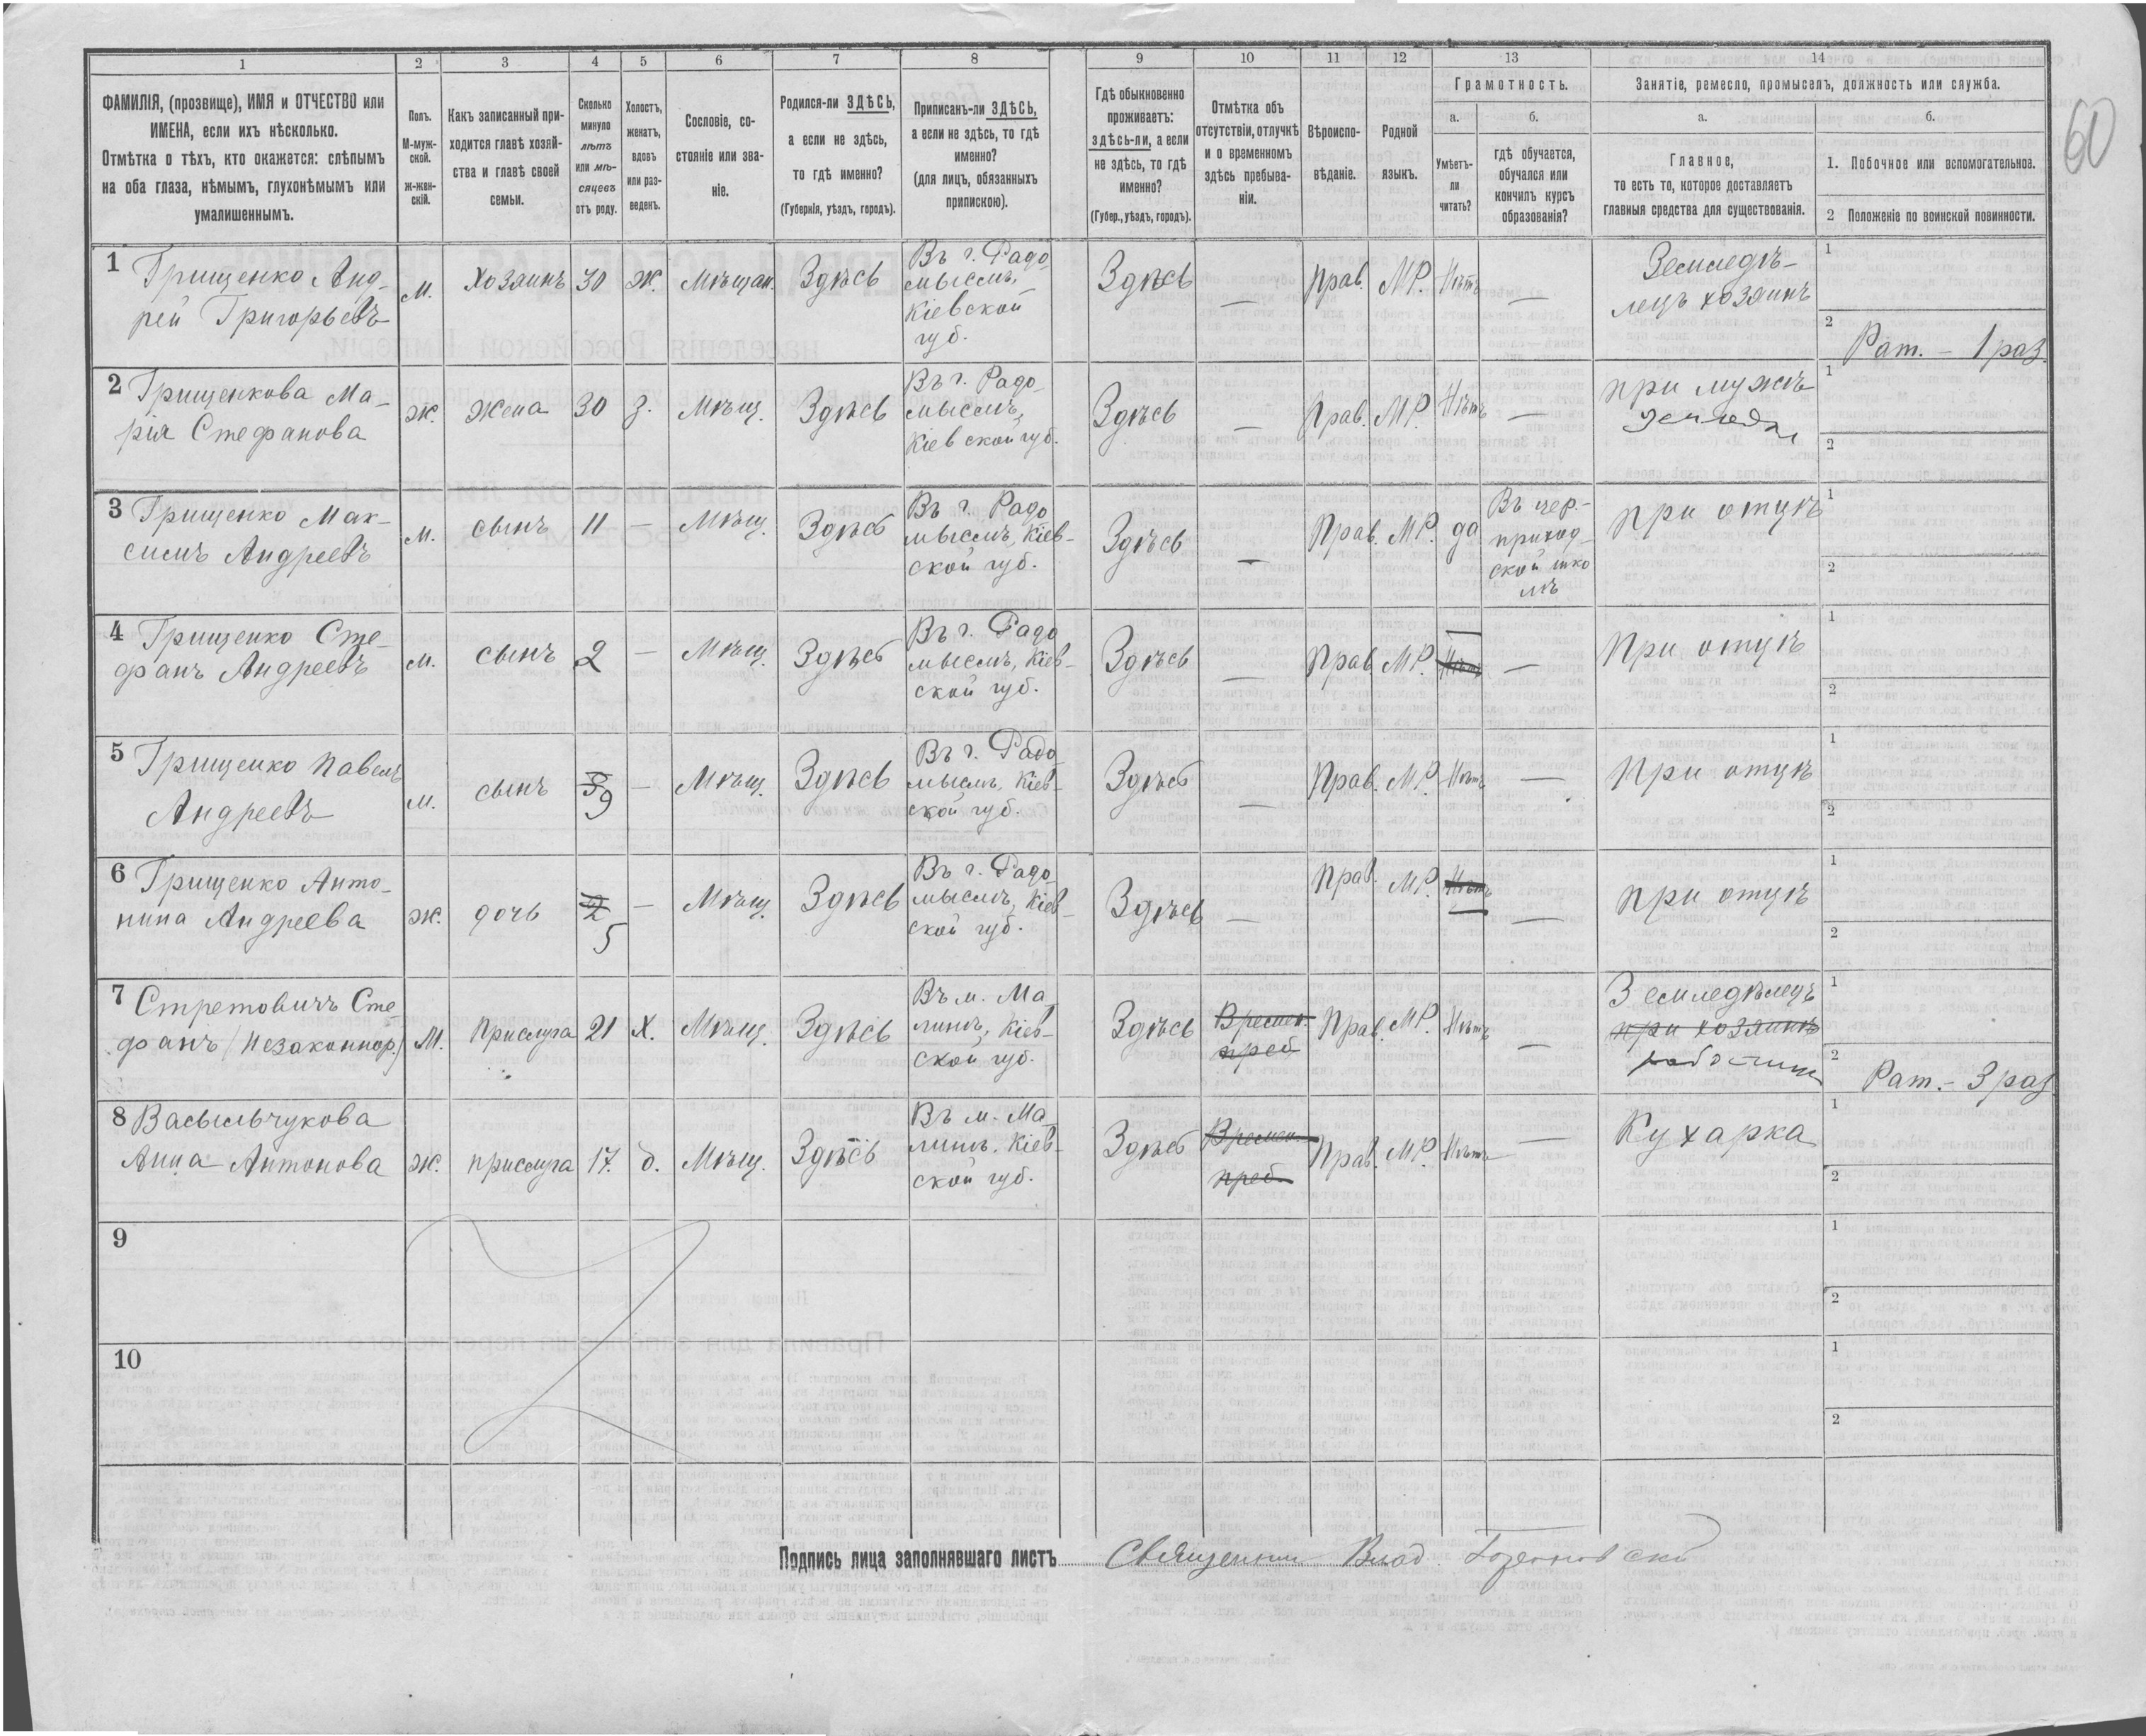 60
1 2 3 4 5 6 7 8 9 10 11 12 13 14
ФАМИЛІЯ, (прозвище), ИМЯ и ОТЧЕСТВО или
ИМЕНА, если ихъ нѣсколько.
Отмѣтка о тѣхъ, кто окажется: слѣпымъ
на оба глаза, нѣмымъ, глухонѣмымъ или
умалишеннымъ.
Полъ.
М-муж-
ской.
ж-жен-
скій.
Какъ записанный при-
ходится главѣ хозяй-
ства и главѣ своей
семьи.
Сколько
минуло
лѣтъ
или мѣ-
сяцевъ
отъ роду.
Холостъ,
женатъ,
вдовъ
или раз-
веденъ.
Сословіе, со-
стояніе или зва-
ніе.
Родился-ли ЗДѢСЬ,
а если не здѣсь,
то гдѣ именно?
(Губернія, уѣздъ, городъ).
Приписанъ-ли ЗДѢСЬ,
а если не здѣсь, то гдѣ
именно?
(для лицъ, обязанныхъ
припискою).
Гдѣ обыкновенно
проживаетъ:
здѣсь-ли, а если
не здѣсь, то гдѣ
именно?
(Губер., уѣздъ, городъ).
Отмѣтка объ
отсутствіи, отлучкѣ
и о временномъ
здѣсь пребыва-
ніи.
Вѣроиспо-
вѣданіе.
Родной
языкъ.
Грамотность.
а.
Умѣетъ-
ли
читать?
б.
гдѣ обучается,
обучался или
кончилъ курсъ
образованія?
Занятіе, ремесло, промыселъ, должность или служба.
а.
Главное,
то есть то, которое доставляетъ
главныя средства для существованія.
б.
1. Побочное или вспомогательное.
2 Положеніе по воинской повинности.
1 Грищенко Анд-
рей Григорьевъ
М.
Хозяинъ
30
Ж.
Мѣщан.
Здѣсь
Въ г. Радо
мыслѣ,
Кіевской
губ.
Здѣсь
—
Прав.
МР.
Нѣтъ
—
Земледѣ-
лецъ хозяинъ
1
2 Рат. – 1 раз.
2 Грищенкова Ма-
рія Стефанова
Ж.
Жена
30
З.
Мѣщ.
Здѣсь
Въ г. Радо
мыслѣ,
Кіевской губ.
Здѣсь
—
Прав.
МР.
Нѣтъ
—
при мужѣ
1
2
3 Грищенко Мак-
симъ Андреевъ
М.
сынъ
11
—
Мѣщ.
Здѣсь
Въ г. Радо
мыслѣ, Кіев-
ской губ.
Здѣсь
—
Прав.
МР.
да
Въ цер.-
приход-
ской шко
лѣ
при отцѣ
1
2
4 Грищенко Сте-
фанъ Андреевъ
М.
сынъ
2
—
Мѣщ.
Здѣсь
Въ г. Радо
мыслѣ, Кіев-
ской губ.
Здѣсь
—
Прав.
МР.
Нѣтъ
—
При отцѣ
1
2
5 Грищенко Павелъ
Андреевъ
М.
сынъ
9
—
Мѣщ.
Здѣсь
Въ г. Радо
мыслѣ, Кіев-
ской губ.
Здѣсь
—
Прав.
МР.
Нѣтъ
—
При отцѣ
1
2
6 Грищенко Анто-
нина Андреева
Ж.
дочь
2
5
—
Мѣщ.
Здѣсь
Въ г. Радо
мыслѣ, Кіев-
ской губ.
Здѣсь
—
Прав.
МР.
Нѣтъ
—
при отцѣ
1
2
7 Стретовичъ Сте-
фанъ (Незаконнор.)
М.
Прислуга
21
Х.
Мѣщ.
Здѣсь
Въ м. Ма
линѣ, Кіев-
ской губ.
Здѣсь
Времен.
преб
Прав.
МР.
Нѣтъ
—
Земледѣлецъ
при хозяинѣ
1
2 Рат. – 3 раз
8 Васильчукова
Анна Антонова
Ж.
прислуга
17.
д.
Мѣщ.
Здѣсь
Въ м. Ма
линѣ, Кіев-
ской губ.
Здѣсь
Времен.
преб.
Прав.
МР.
Нѣтъ
—
Кухарка
1
2
9
1
2
10
1
2
Подпись лица заполнявшаго листъ Священник Влад.